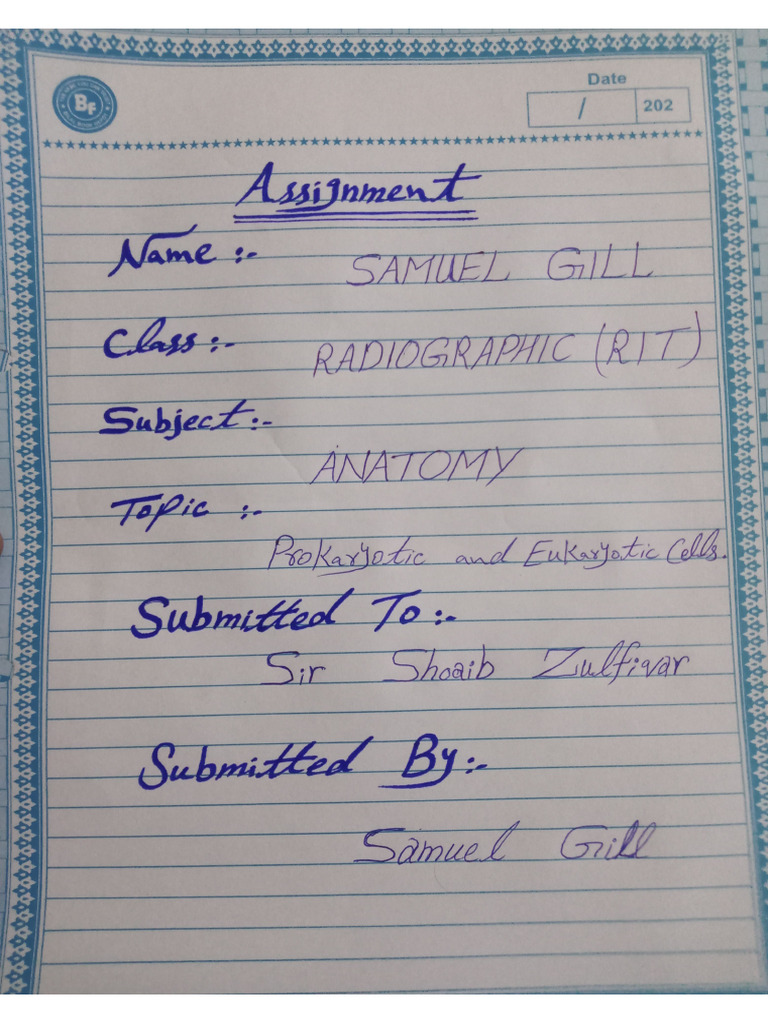 Date
BF
/ 202
Assignment
Name :- SAMUEL GILL
Class :- RADIOGRAPHIC (RIT)
Subject :-
ANATOMY
Topic :-
Prokaryotic and Eukaryotic Cells.
Submitted To :-
Sir Shoaib Zulfivar
Submitted By :-
Samuel Gill